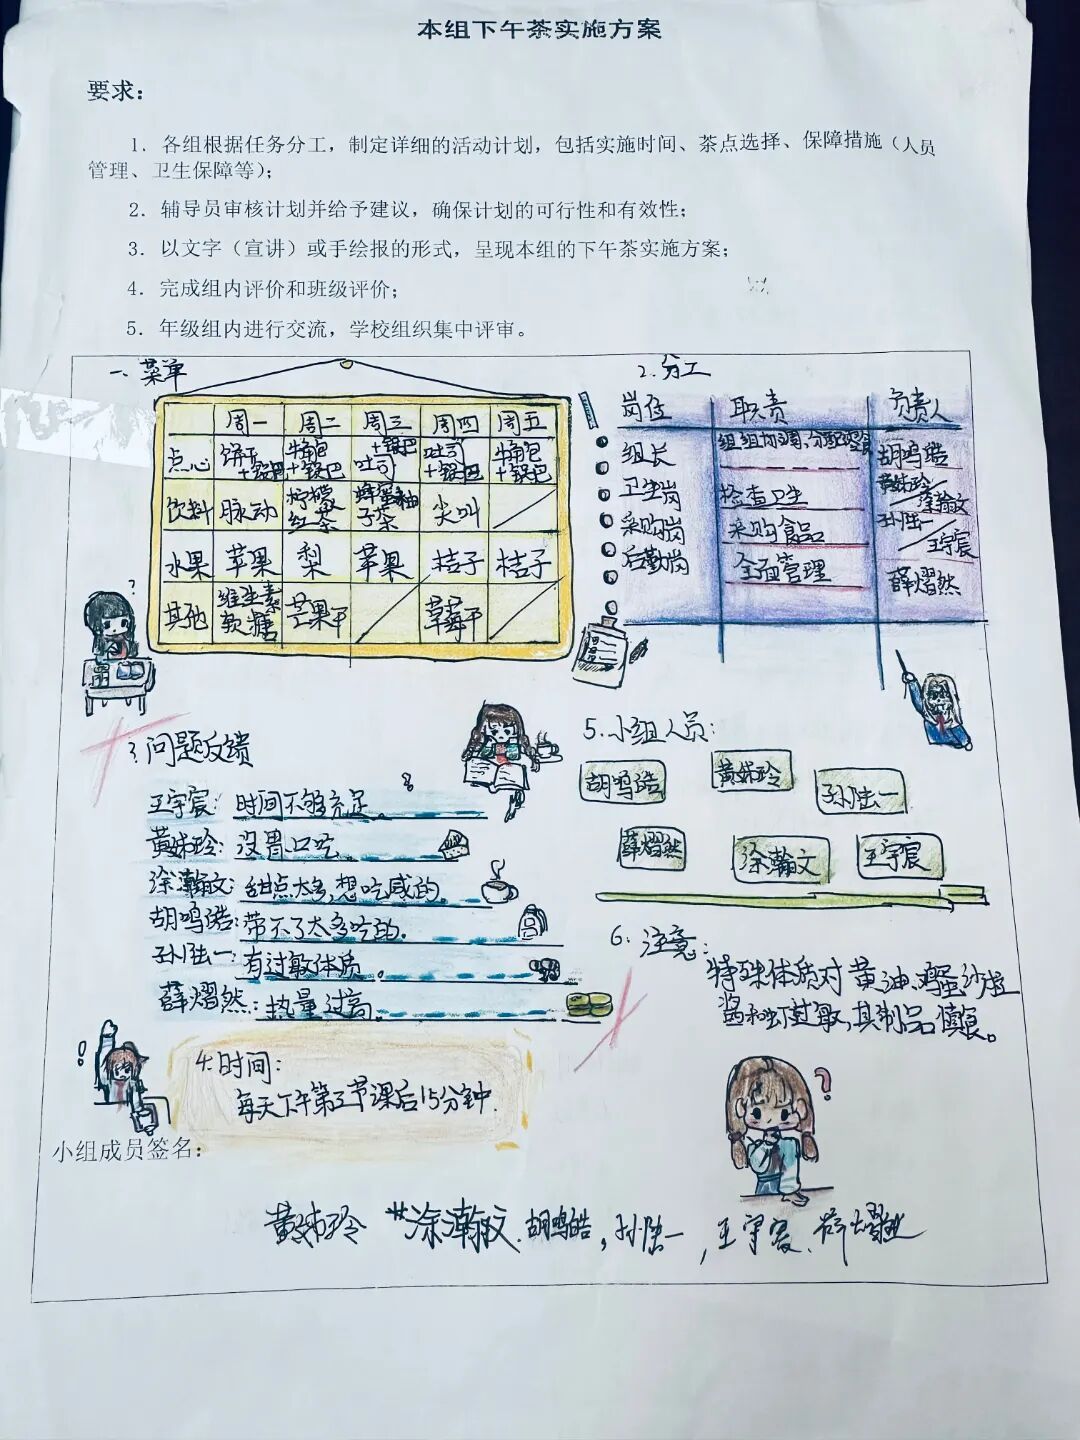 本组下午茶实施方案
要求：
1．各组根据任务分工，制定详细的活动计划，包括实施时间、茶点选择、保障措施（人员
管理、卫生保障等）；
2．辅导员审核计划并给予建议，确保计划的可行性和有效性；
3．以文字（宣讲）或手绘报的形式，呈现本组的下午茶实施方案；
4．完成组内评价和班级评价；
5．年级组内进行交流，学校组织集中评审。
一、菜单
周一 周二 周三 周四 周五
点心 饼干+锅巴 牛角包+锅巴 吐司+锅巴 吐司+锅巴 牛角包+锅巴
饮料 脉动 柠檬红茶 蜂蜜柚子茶 尖叫
水果 苹果 梨 苹果 桔子 桔子
其他 维生素软糖 芒果干 草莓干
2.分工
岗位 职责 负责人
组长 胡鸣皓
卫生岗 检查卫生 黄姊玲/涂瀚文
采购岗 采购食品 孙陆一/王宇宸
后勤岗 全面管理 薛熠然
3.问题反馈
王宇宸：时间不够充足。
黄姊玲：没胃口吃
涂瀚文：甜点太多，想吃咸的。
胡鸣皓：带不了太多吃的。
孙陆一：有过敏体质。
薛熠然：热量过高。
4.时间：
每天下午第三节课后15分钟.
5.小组人员：
胡鸣皓 黄姊玲 孙陆一
薛熠然 涂瀚文 王宇宸
6.注意：
特殊体质对黄油、鸡蛋、沙拉
酱和虾过敏，其制品慎食。
小组成员签名：
黄姊玲 涂瀚文. 胡鸣皓, 孙陆一, 王宇宸. 薛熠然